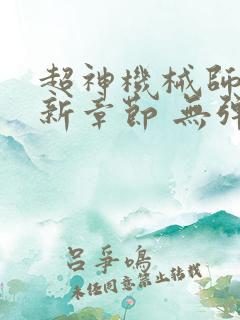 超神機械師
新章節 無彈
呂爭鳴
未任同意禁止轉載